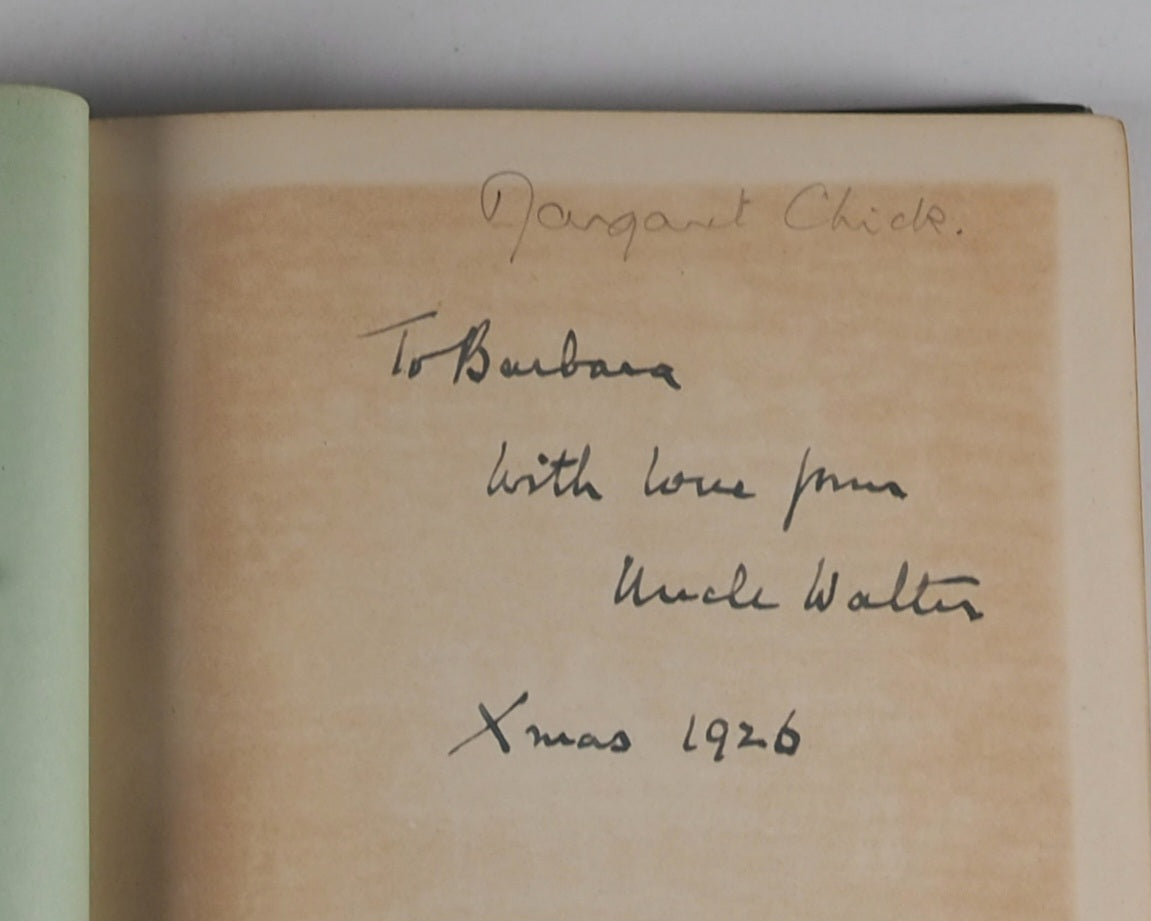 Margaret Chick.
To Barbara
With love from
Uncle Walter
Xmas 1926